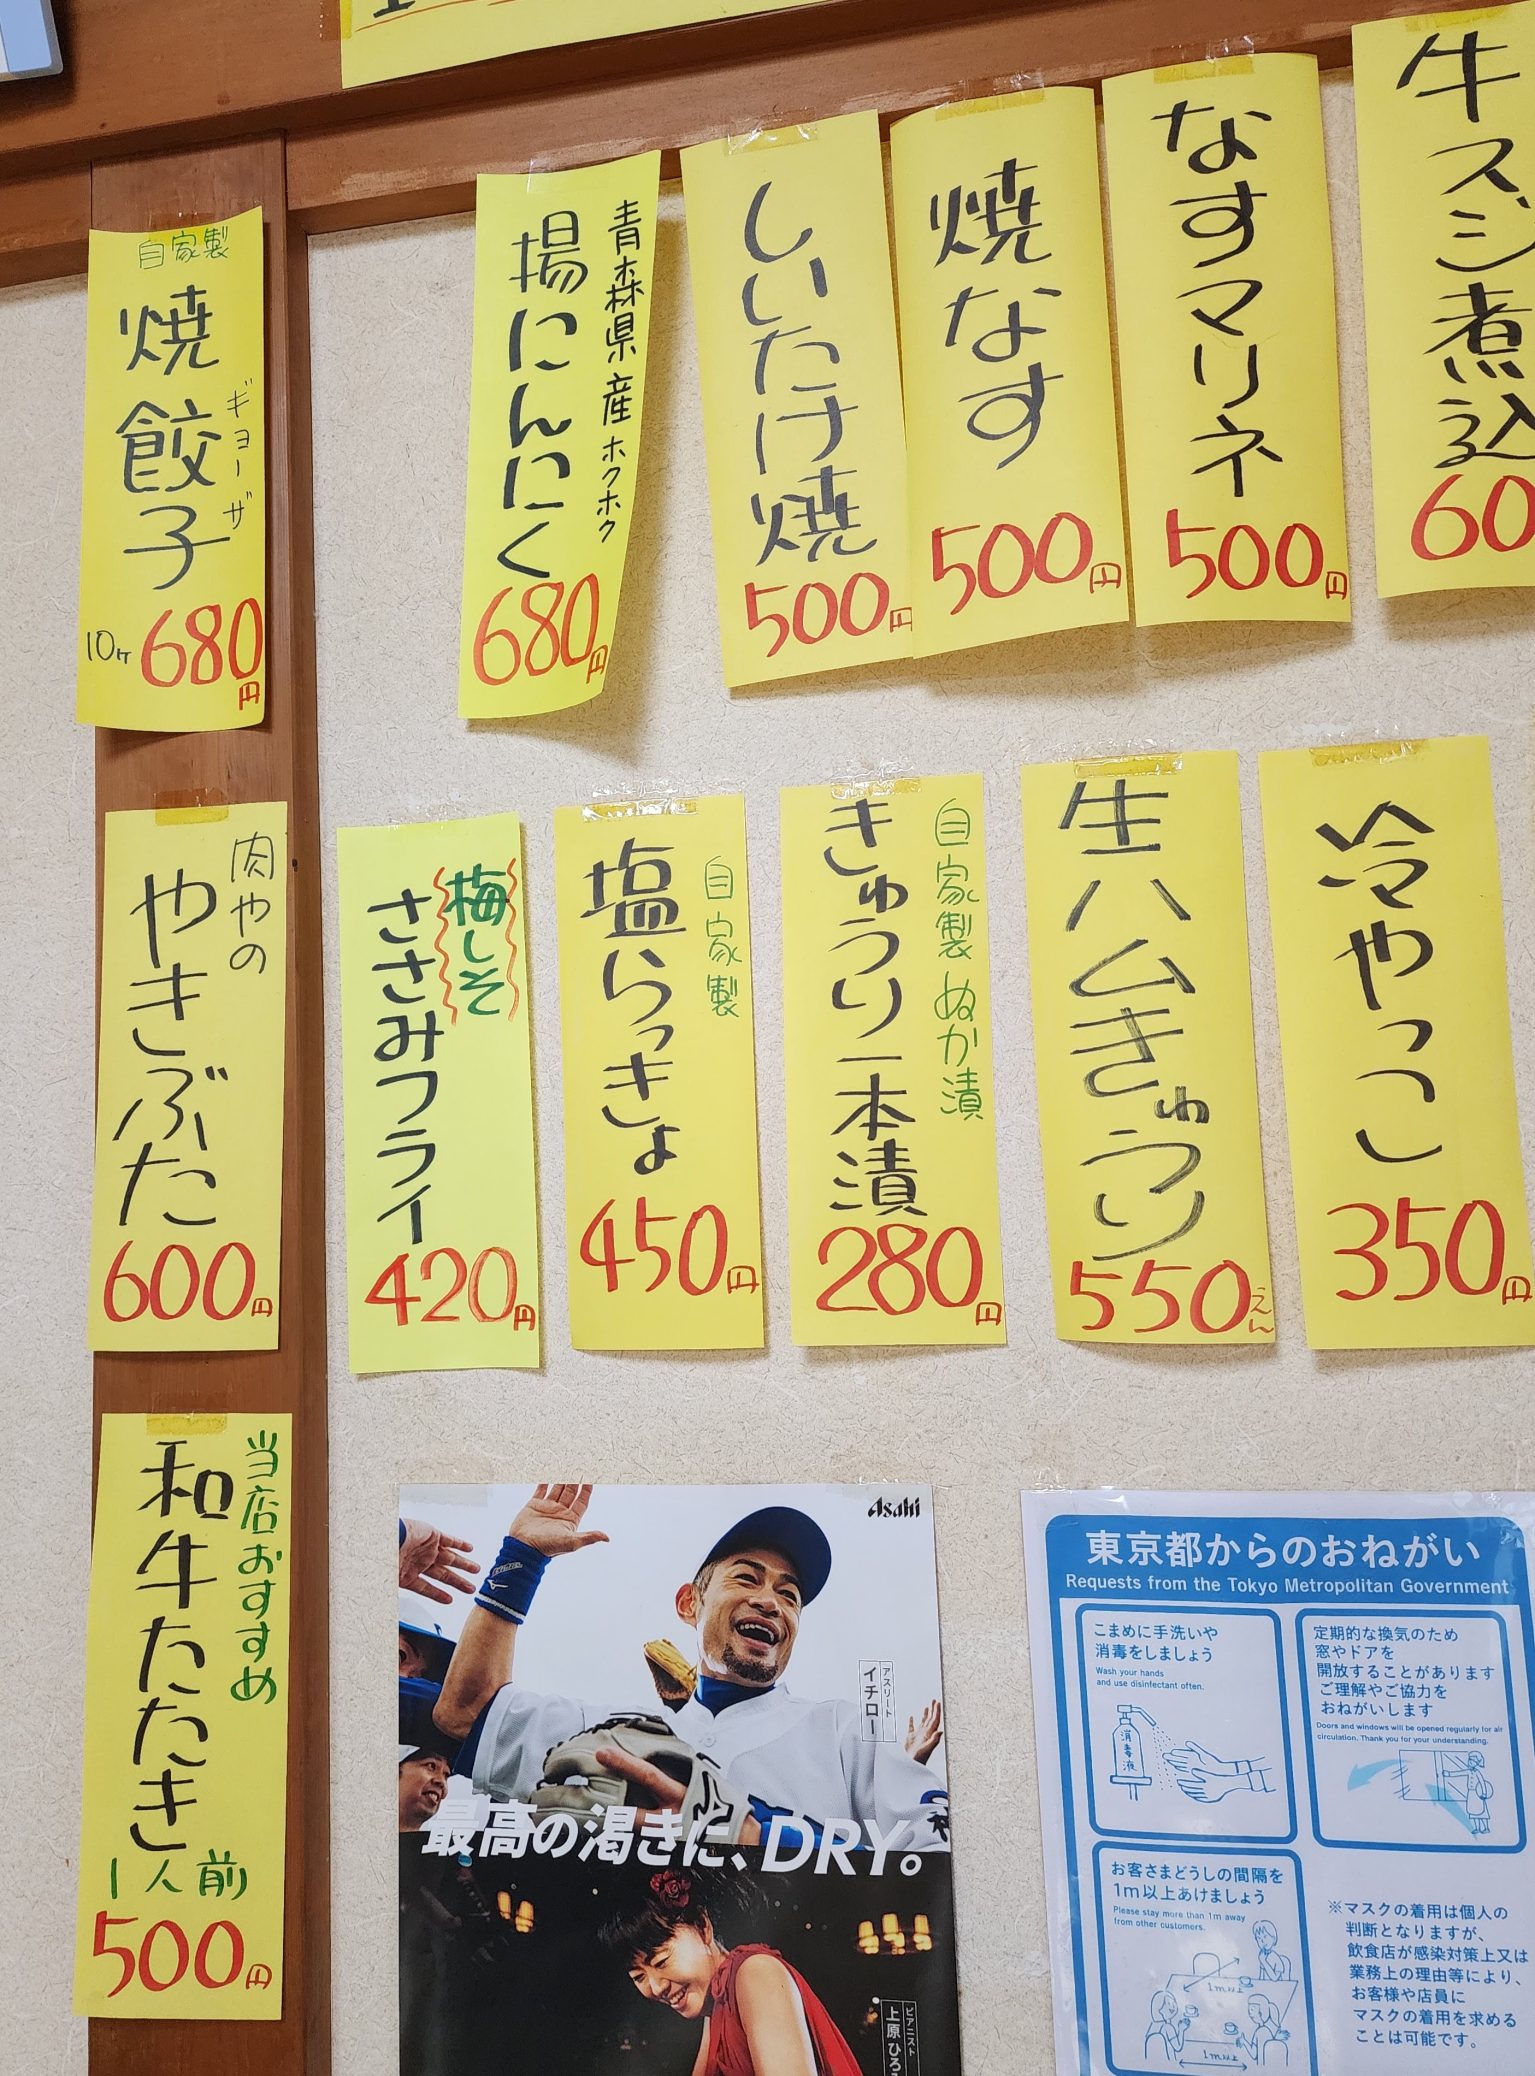 自家製
焼餃子
ギョーザ
10ケ 680円
青森県産ホクホク
揚にんにく
680円
しいたけ焼
500円
焼なす
500円
なすマリネ
500円
牛スジ煮込
60
肉やの
やきぶた
600円
梅しそ
ささみフライ
420円
自家製
塩らっきょ
450円
自家製ぬか漬
きゅうり一本漬
280円
生ハムきゅうり
550えん
冷やっこ
350円
当店おすすめ
和牛たたき
1人前
500円
Asahi
アスリート
イチロー
最高の渇きに、DRY。
ピアニスト
上原ひろ
東京都からのおねがい
Requests from the Tokyo Metropolitan Government
こまめに手洗いや
消毒をしましょう
Wash your hands
and use disinfectant often.
消毒液
定期的な換気のため
窓やドアを
開放することがあります
ご理解やご協力を
おねがいします
Doors and windows will be opened regularly for air
circulation. Thank you for your understanding.
お客さまどうしの間隔を
1m以上あけましょう
Please stay more than 1m away
from other customers.
1m以上
1m以上
※マスクの着用は個人の
判断となりますが、
飲食店が感染対策上又は
業務上の理由等により、
お客様や店員に
マスクの着用を求める
ことは可能です。